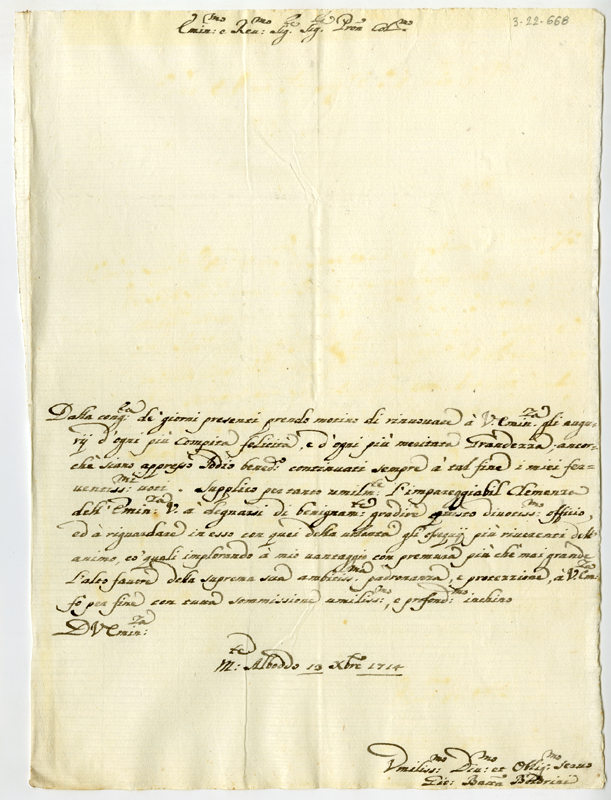 3-22-668
Emin:mo e Reu:mo Sig.re Sig.re Pron Col:mo
Dalla cong:za de' giorni presenti prendo motiuo di rinuouare à V. Emin:za gli augu-
rij d'ogni più compita felicità, e d'ogni più meritata Grandezza; ancor-
che siano appresso Iddio bened:o continuati sempre à tal fine i miei fer-
uentiss:mi uoti. Supplico per tanto umilm:te l'impareggiabil Clemenza
dell'Emin:za V.a a degnarsi di benignam:te gradire questo diuotiss:mo officio,
ed à riguardare in esso con quei della usanza gli osequij più riuerenti dell'
animo, co' quali implorando à mio uantaggio con premura più che mai grande
l'alto fauore della suprema sua ambitiss:ma padronanza, e protezzione, à V. Em:za
fò per fine con tutta sommissione umiliss:mo, e profond:mo inchino
D V Emin:za
M:te Alboddo 13 Xbre 1714
Vmiliss:mo Diu:mo et Oblig:mo Seruo
Gio: Batta